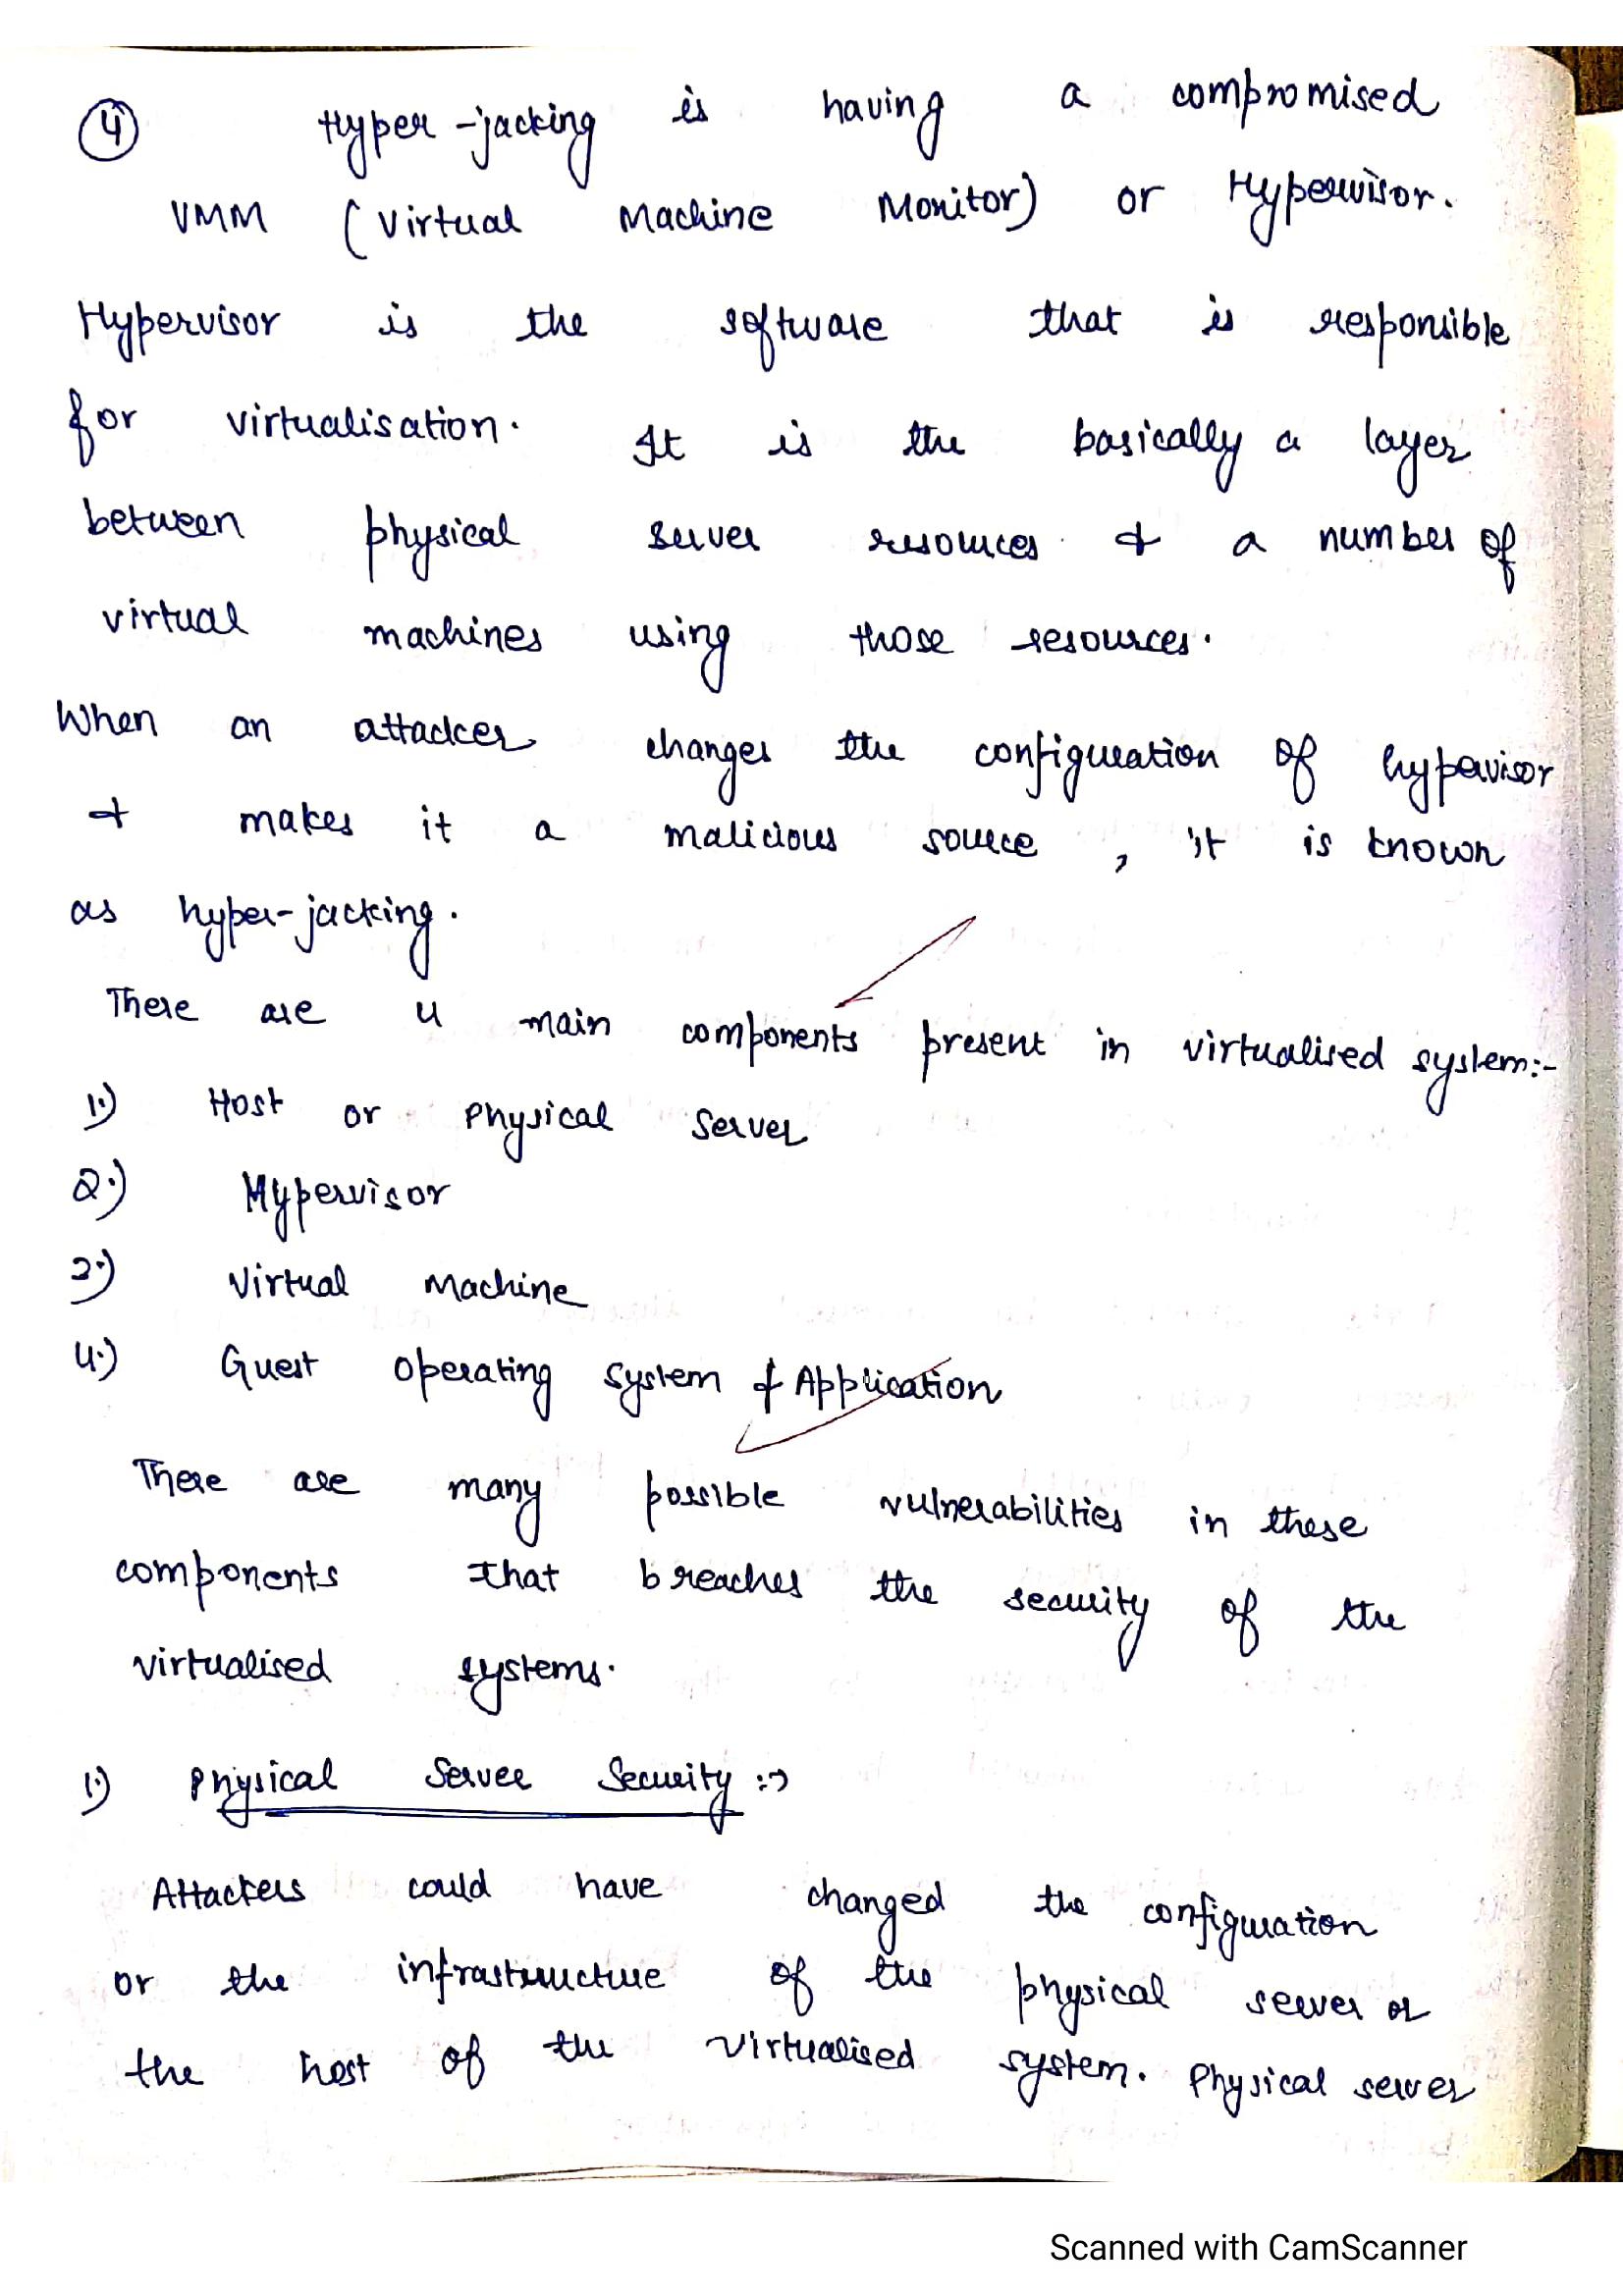 ④ Hyper-jacking is having a compromised
VMM (Virtual Machine Monitor) or Hypervisor.
Hypervisor is the software that is responsible
for virtualisation. It is the basically a layer
between physical server resources & a number of
virtual machines using those resources.
When an attacker changes the configuration of hypervisor
& makes it a malicious source, it is known
as hyper-jacking.
There are 4 main components present in virtualised system:-
1.) Host or Physical Server
2.) Hypervisor
3.) Virtual Machine
4.) Guest Operating System & Application
There are many possible vulnerabilities in these
components that breaches the security of the
virtualised systems.
1.) Physical Server Security :→
Attackers could have changed the configuration
or the infrastructure of the physical server or
the host of the virtualised system. Physical server
Scanned with CamScanner